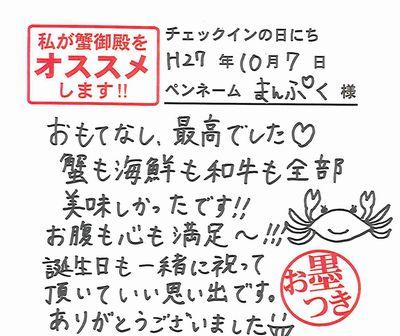 私が蟹御殿を
オススメ
します!!
チェックインの日にち
H27年10月7日
ペンネーム まんぷく 様
おもてなし、最高でした♡
蟹も海鮮も和牛も全部
美味しかったです!!
お腹も心も満足〜!!!
誕生日も一緒に祝って
頂いていい思い出です。
ありがとうございました
お墨つき